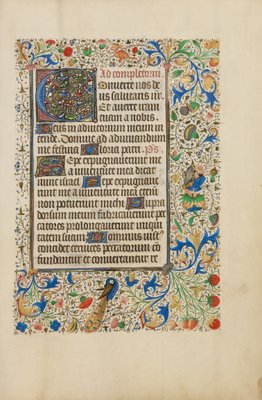 Ad completorium
Converte nos de
us salutaris nr̄.
Et averte iram
tuam a nobis.
Deus in adiutorium meum in
tende. Domine ad adiuvandum
me festina. Gloria patri. Ps.
Sepe expugnaverunt me
a iuventute mea dicat
nunc israel. Sepe expugnave
runt me a iuventute mea etenī
non potuerunt michi. Supra
dorsum meum fabricaverunt pec
catores prolongaverunt iniqui
tatem suam. Dominus iust
concidet cervices peccatorum cō
fundantur et convertantur re